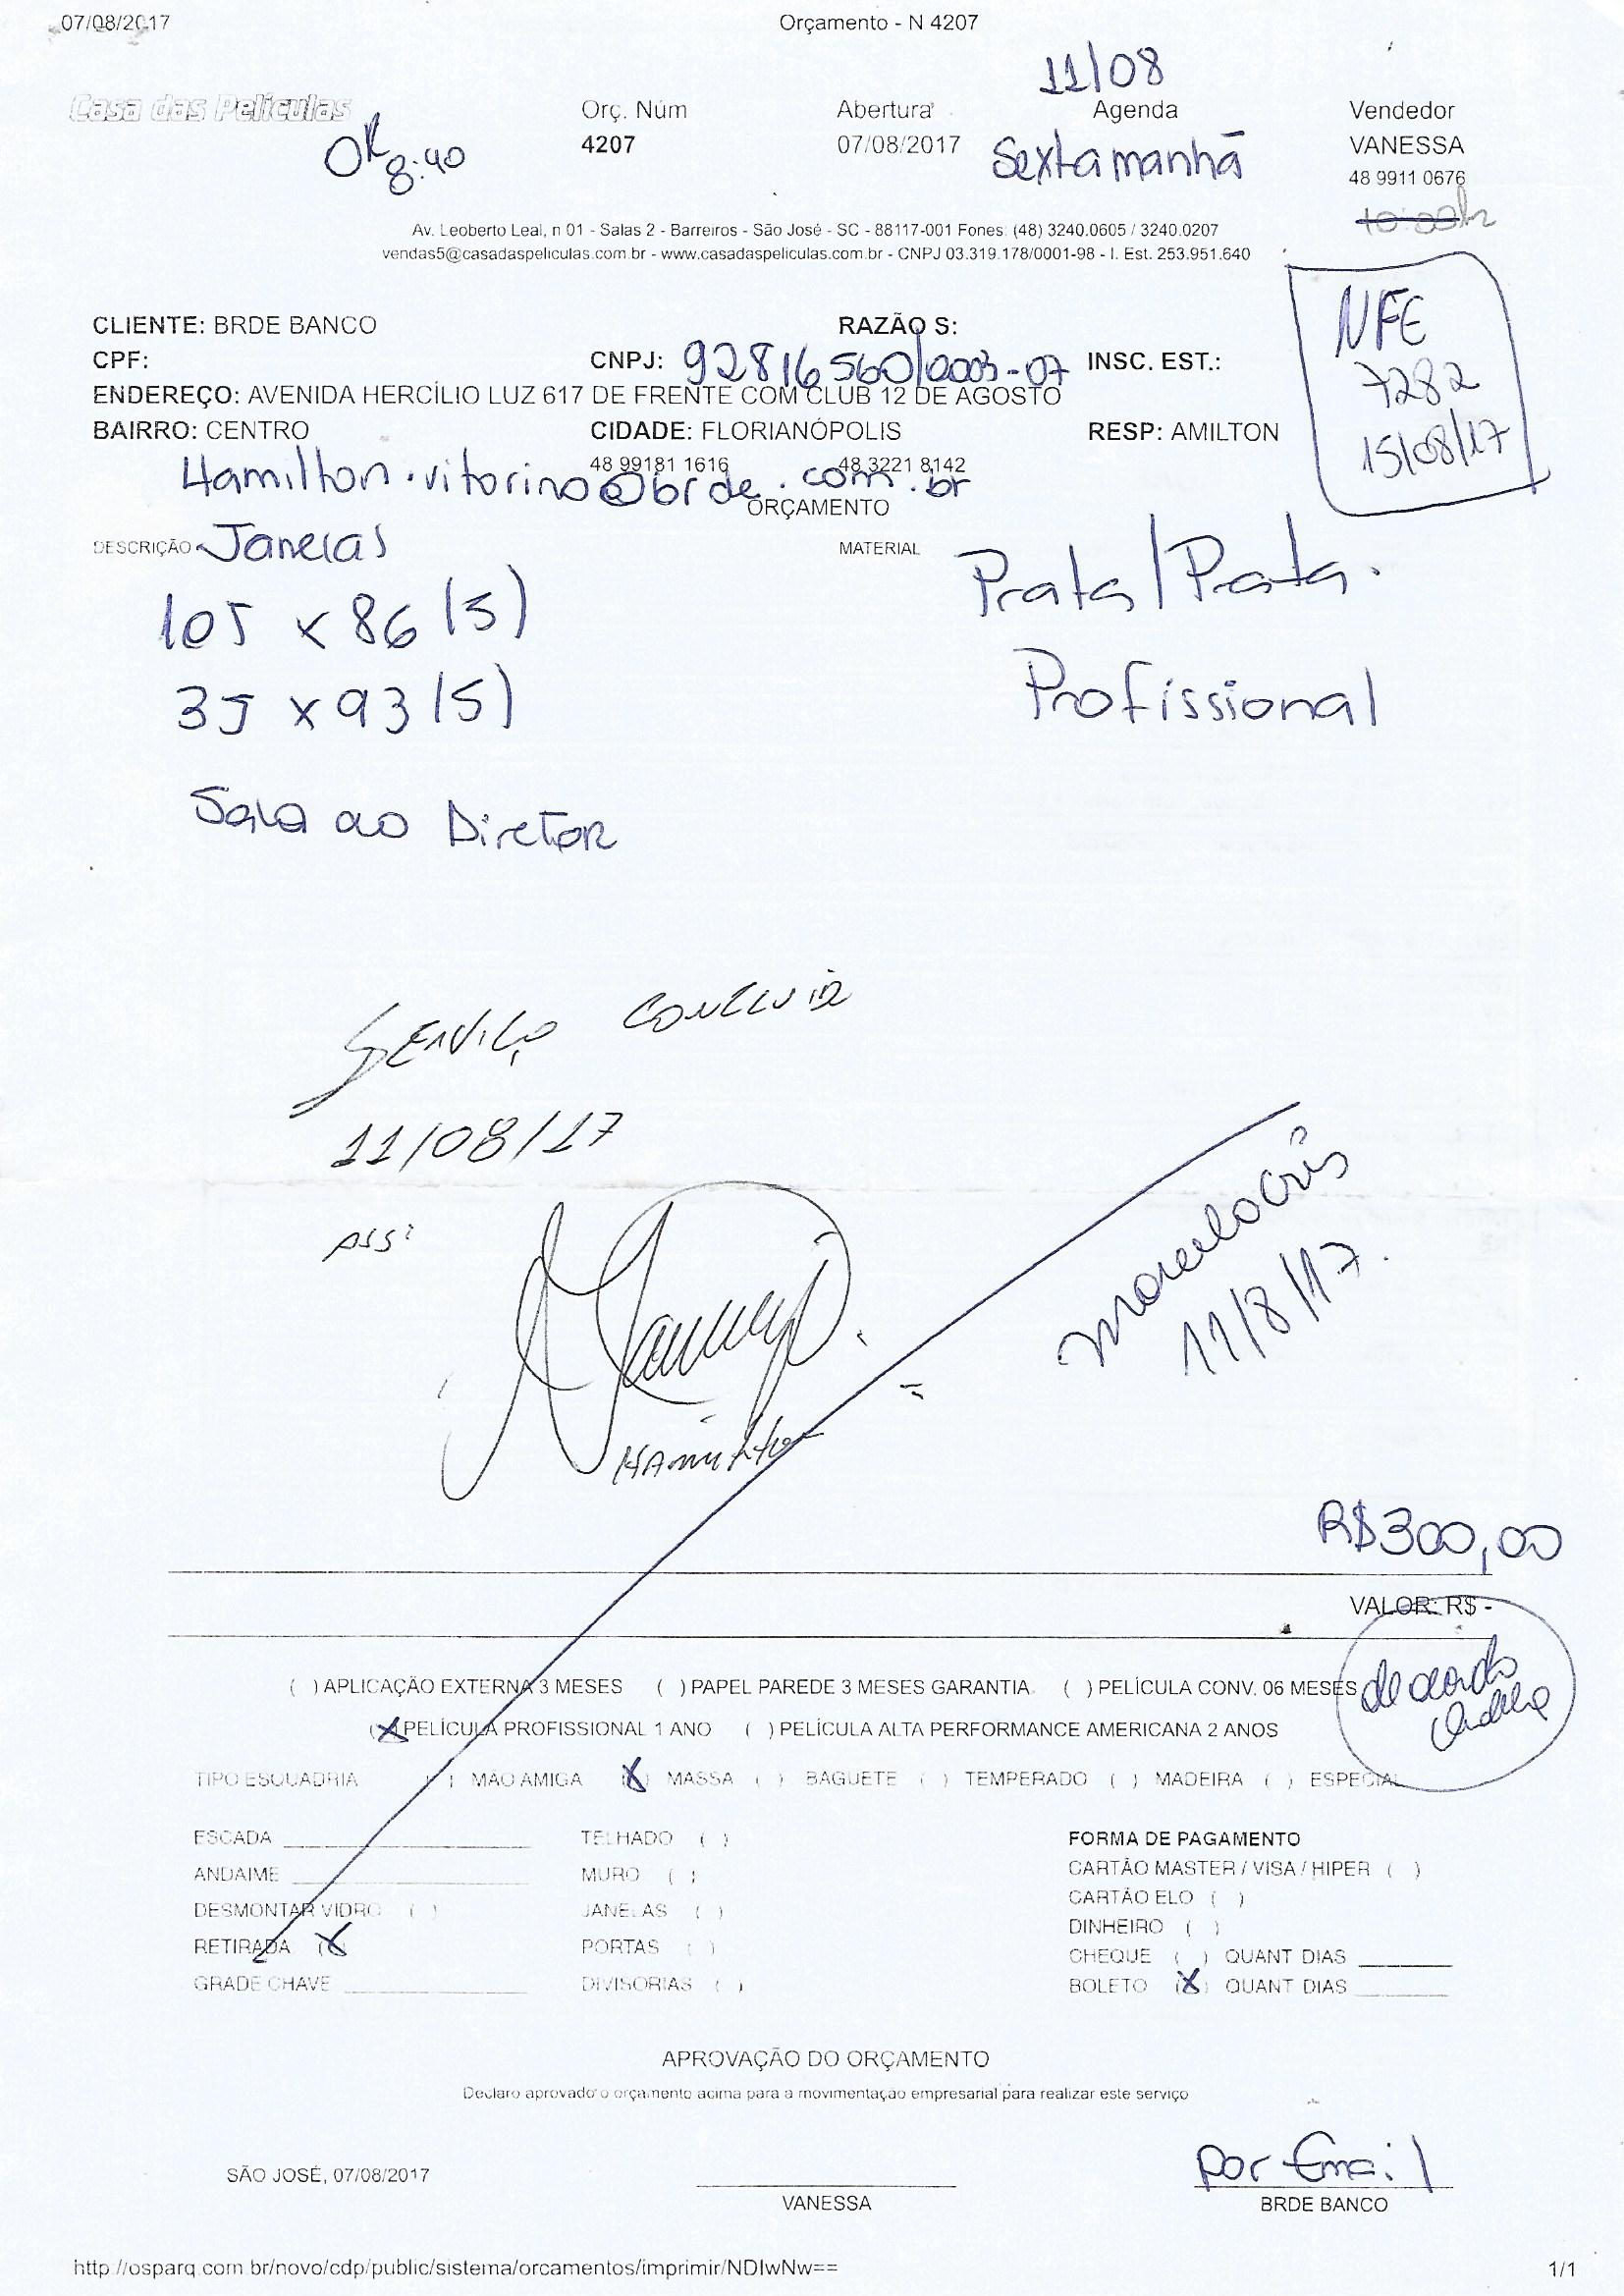 07/08/2017 Orçamento - N 4207
11/08
Casa das Películas Orç. Núm Abertura Agenda Vendedor
OK 8:40 4207 07/08/2017 Sexta manhã VANESSA
48 9911 0676
10:00h
Av. Leoberto Leal, n 01 - Salas 2 - Barreiros - São José - SC - 88117-001 Fones: (48) 3240.0605 / 3240.0207
vendas5@casadaspeliculas.com.br - www.casadaspeliculas.com.br - CNPJ 03.319.178/0001-98 - I. Est. 253.951.640
NFE
7282
15/08/17
CLIENTE: BRDE BANCO RAZÃO S:
CPF: CNPJ: 92816560/0003-07 INSC. EST.:
ENDEREÇO: AVENIDA HERCÍLIO LUZ 617 DE FRENTE COM CLUB 12 DE AGOSTO
BAIRRO: CENTRO CIDADE: FLORIANÓPOLIS RESP: AMILTON
48 99181 1616 48 3221 8142
Hamilton.vitorino@brde.com.br
ORÇAMENTO
DESCRIÇÃO Janelas MATERIAL Prata/Prata.
105 x 86 (5)
35 x 93 (5) Profissional
Sala do Diretor
SERVIÇO
11/08/17
ASS:
Hamilton
11/8/17.
R$300,00
VALOR: R$ -
de acordo
( ) APLICAÇÃO EXTERNA 3 MESES ( ) PAPEL PAREDE 3 MESES GARANTIA ( ) PELÍCULA CONV. 06 MESES
(X) PELÍCULA PROFISSIONAL 1 ANO ( ) PELÍCULA ALTA PERFORMANCE AMERICANA 2 ANOS
TIPO ESQUADRIA ( ) MAO AMIGA (X) MASSA ( ) BAGUETE ( ) TEMPERADO ( ) MADEIRA ( ) ESPECIAL
ESCADA TELHADO ( ) FORMA DE PAGAMENTO
ANDAIME MURO ( ) CARTÃO MASTER / VISA / HIPER ( )
CARTÃO ELO ( )
DESMONTAR VIDRO ( ) JANELAS ( ) DINHEIRO ( )
RETIRADA (X) PORTAS ( ) CHEQUE ( ) QUANT DIAS
GRADE CHAVE DIVISORIAS ( ) BOLETO (X) QUANT DIAS
APROVAÇÃO DO ORÇAMENTO
Declaro aprovado o orçamento acima para a movimentação empresarial para realizar este serviço
por Email
SÃO JOSÉ, 07/08/2017
VANESSA BRDE BANCO
http://osparq.com.br/novo/cdp/public/sistema/orcamentos/imprimir/NDIwNw== 1/1